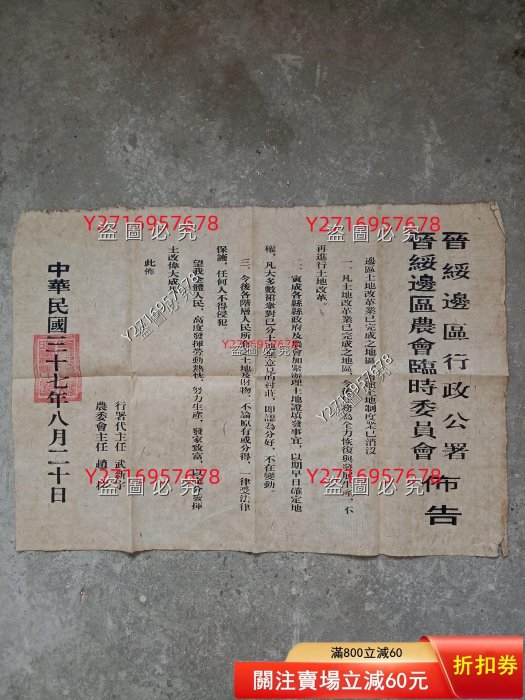 晉綏邊區行政公署
晉綏邊區農會臨時委員會
佈告
邊區土地改革業已完成之地區
土地制度業已消沒
一、凡土地改革業已完成之地區
為全力恢復與發展生產，不
再進行土地改革。
二、寅成各縣縣政府及農會加緊辦理土地證填發事宜，以期早日確定地
權，凡大多數羣衆對已分土地無意見的村莊，即認為分好，不在變動
三、今後各階層人民所有土地及財物，不論原有或分得，一律受法律
保護，任何人不得侵犯
望我全體人民，高度發揮勞動熱忱，努力生產，發家致富，以
發揮
土改偉大成果
此佈
行署代主任 武新宇
農委會主任
中華民國三十七年八月二十日
Y2716957678
盜圖必究
Y2716957678
盜圖必究
Y2716957678
盜圖必究
Y2716957678
盜圖必究
Y2716957678
盜圖必究
Y2716957678
盜圖必究
Y2716957678
盜圖必究
Y2716957678
盜圖必究
Y2716957678
盜圖必究
滿800立減60
關注賣場立減60元
折扣券